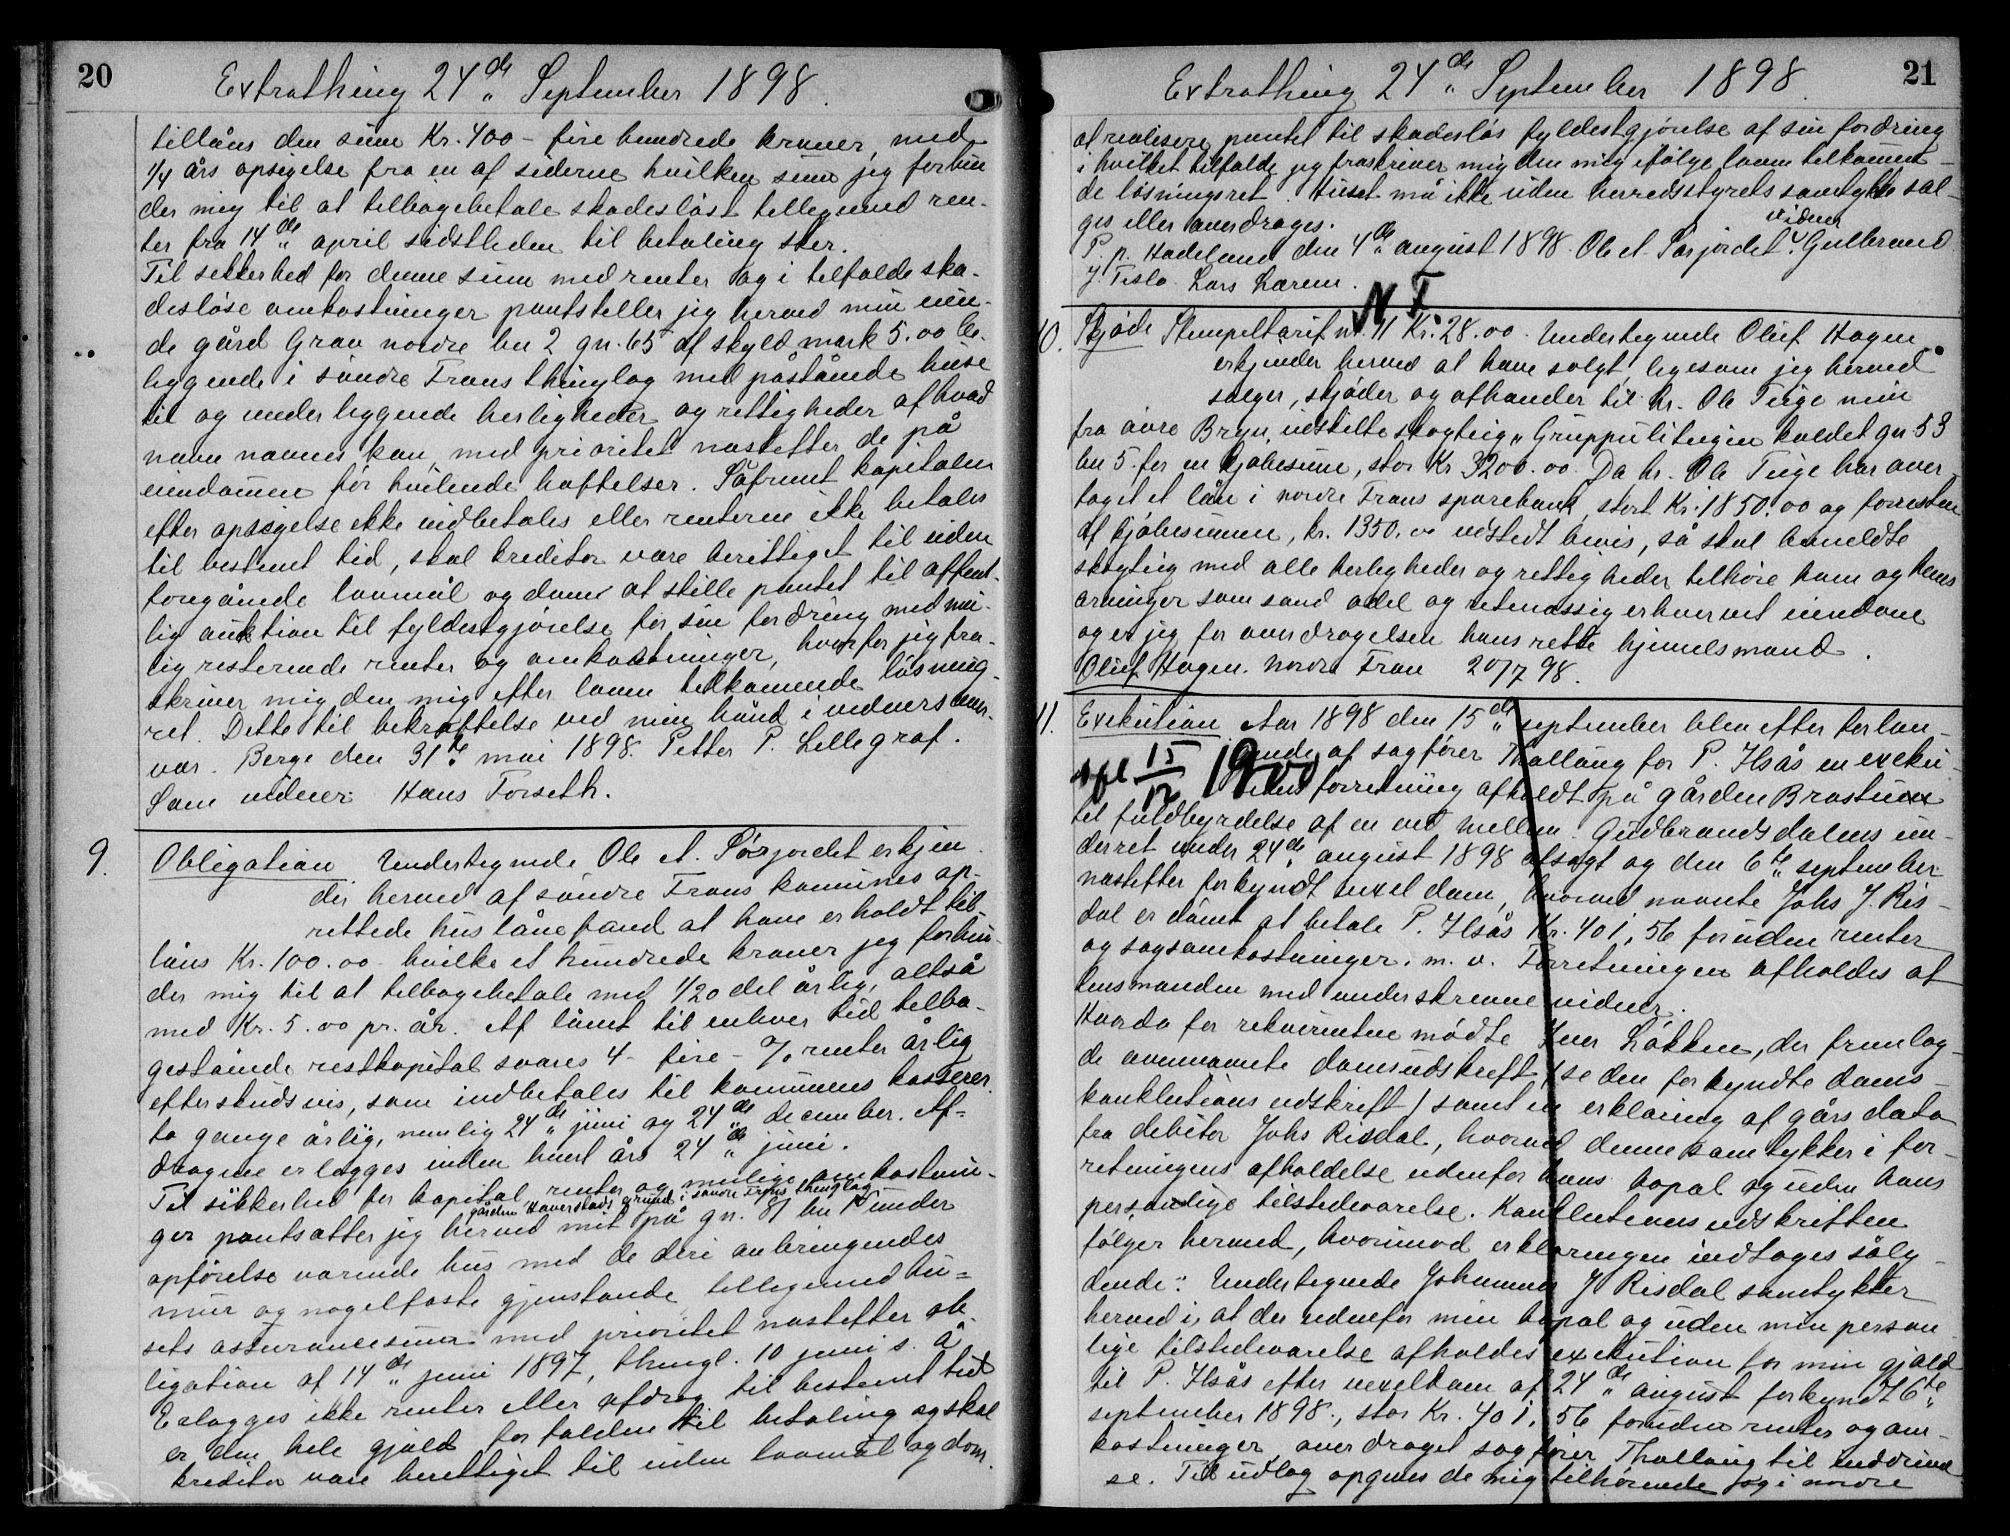 20
Extrathing 24de September 1898.
tillåns den sum Kr. 400 - fire hundrede kroner, med
1/4 års opsigelse fra en af siderne hvilken sum jeg forbin
der mig til at tilbagebetale skadesløst tilligemed ren-
ter fra 14de april sidstleden til betaling sker.
Til sikkerhed for denne sum med renter og i tilfælde ska-
desløse omkostninger pantsteller jeg herved min eien-
de gård Grav nordre bn 2 gn. 65 af skyld mark 5.00
liggende i søndre Frons thinglag med påstående huse
til og underliggende herligheder og rettigheder af hvad
navn nævnes kan, med prioritet næstefter de på
eiendommen før hvilende hæftelser. Såfremt kapitalen
efter opsigelse ikke indbetales eller renterne ikke betales
til bestemt tid, skal kreditor være berettiget til uden
foregående lovmål og dom at stille pantet til offent-
lig auktion til fyldestgjørelse for sin fordring med mu-
lig resterende renter og omkostninger, hvorfor jeg fra-
skriver mig den mig efter loven tilkommende løsnings-
ret. Dette til bekræftelse ved min hånd i vidners over-
vær. Berge den 31te mai 1898. Petter P. Lillegraf.
Som vidner: Hans Forseth.
9. Obligation Undertegnede Ole A. Sørjordet erkjen
der herved af søndre Frons kommunes op-
rettede huslånefond at have erholdt til-
låns Kr. 100.00 hvilke et hundrede kroner jeg forbin-
der mig til at tilbagebetale med 1/20 del årlig, altså
med Kr. 5.00 pr. år. Af lånet til enhver tid tilba-
gestående restkapital svares 4 - fire - % renter årlig
efterskudsvis, som indbetales til kommunens kasserer
to gange årlig, nemlig 24de juni og 24de december. Af-
dragene erlægges inden hvert års 24de juni.
Til sikkerhed for kapital, renter og mulige omkostnin-
gården Haverstads grund i søndre Frons thinglag
ger pantsætter jeg herved mit på gn. 81 bn under
opførelse værende hus med de deri anbringendes
mur og nagelfaste gjenstande tilligemed hu-
sets assurancesum med prioritet næstefter ob-
ligation af 14de juni 1897, thingl. 10 juni s. å.
Erlægges ikke renter eller afdrag til bestemt tid
er den hele gjæld forfalden til betaling og skal
kreditor være berettiget til uden lovmål og dom
21
Extrathing 24de September 1898.
at realisere pantet til skadesløs fyldestgjørelse af sin fordring
i hvilket tilfælde jeg fraskriver mig den mig ifølge loven tilkommen-
de løsningsret. Huset må ikke uden herredsstyrets samtykke sæl-
ges eller overdrages. vidner
P. p. Hadeland den 4de august 1898. Ole A. Sørjordet. Gulbrand
J. Tislo. Lars Lærem.
N F.
10. Skjøde Stempeltarif nr. 11 Kr. 28.00. Undertegnede Oluf Hagen
erkjender herved at have solgt, ligesom jeg herved
sælger, skjøder og afhænder til hr. Ole Tuge min
fra øvre Bryn udskilte skogteig „Gruppuliteigen kaldet gn 53
bn 5 for en kjøbesum, stor Kr 3200.00. Da hr. Ole Tuge har over
taget et lån i nordre Frons sparebank, stort Kr. 1850.00 og forresten
af kjøbesummen, kr. 1350.00 udstedt bevis, så skal bemeldte
skogteig med alle herligheder og rettigheder tilhøre ham og hans
arvinger som sand odel og retmæssig erhvervet eiendom
og er jeg for overdragelsen hans rette hjemmelsmand.
Oluf Hagen. Nordre Fron 20/7 98.
11. Exekution Aar 1898 den 15de september blev efter forlan-
gende af sagfører Thallaug for P. Ilsås en exeku-
Afl 15/12 1900
tions forretning afholdt på gården Brøstuen
til fuldbyrdelse af en ved mellem Gudbrandsdalens un-
derret under 24de august 1898 afsagt og den 6te september
næstefter forkyndt vexeldom, hvorved nævnte Johs J. Ris-
dal er dømt at betale P. Ilsås Kr. 401,56 foruden renter
og sagsomkostninger. m. v. Forretningen afholdes af
lensmanden med underskrevne vidner.
Hvorda for rekvirenten mødte Iver Løkken, der fremlag-
de ovennævnte domsudskrift, (se den forkyndte doms-
konklutions udskrift) samt en erklæring af gårs dato
fra debitor Johs Risdal, hvorved denne samtykker i for-
retningens afholdelse udenfor hans bopæl og uden hans
personlige tilstedeværelse. Konklutions udskriften
følger herved, hvorimod erklæringen indtages såly-
dende: Undertegnede Johannes J. Risdal samtykker
herved i, at der udenfor min bopæl og uden min person
lige tilstedeværelse afholdes exekution for min gjæld
til P. Ilsås efter vexeldom af 24de august forkyndt 6te
september 1898, stor Kr. 401,56 foruden renter og om-
kostninger overdraget sagfører Thallaug til inddrivel
se. Til udlæg opgives de mig tilhørende i nordre